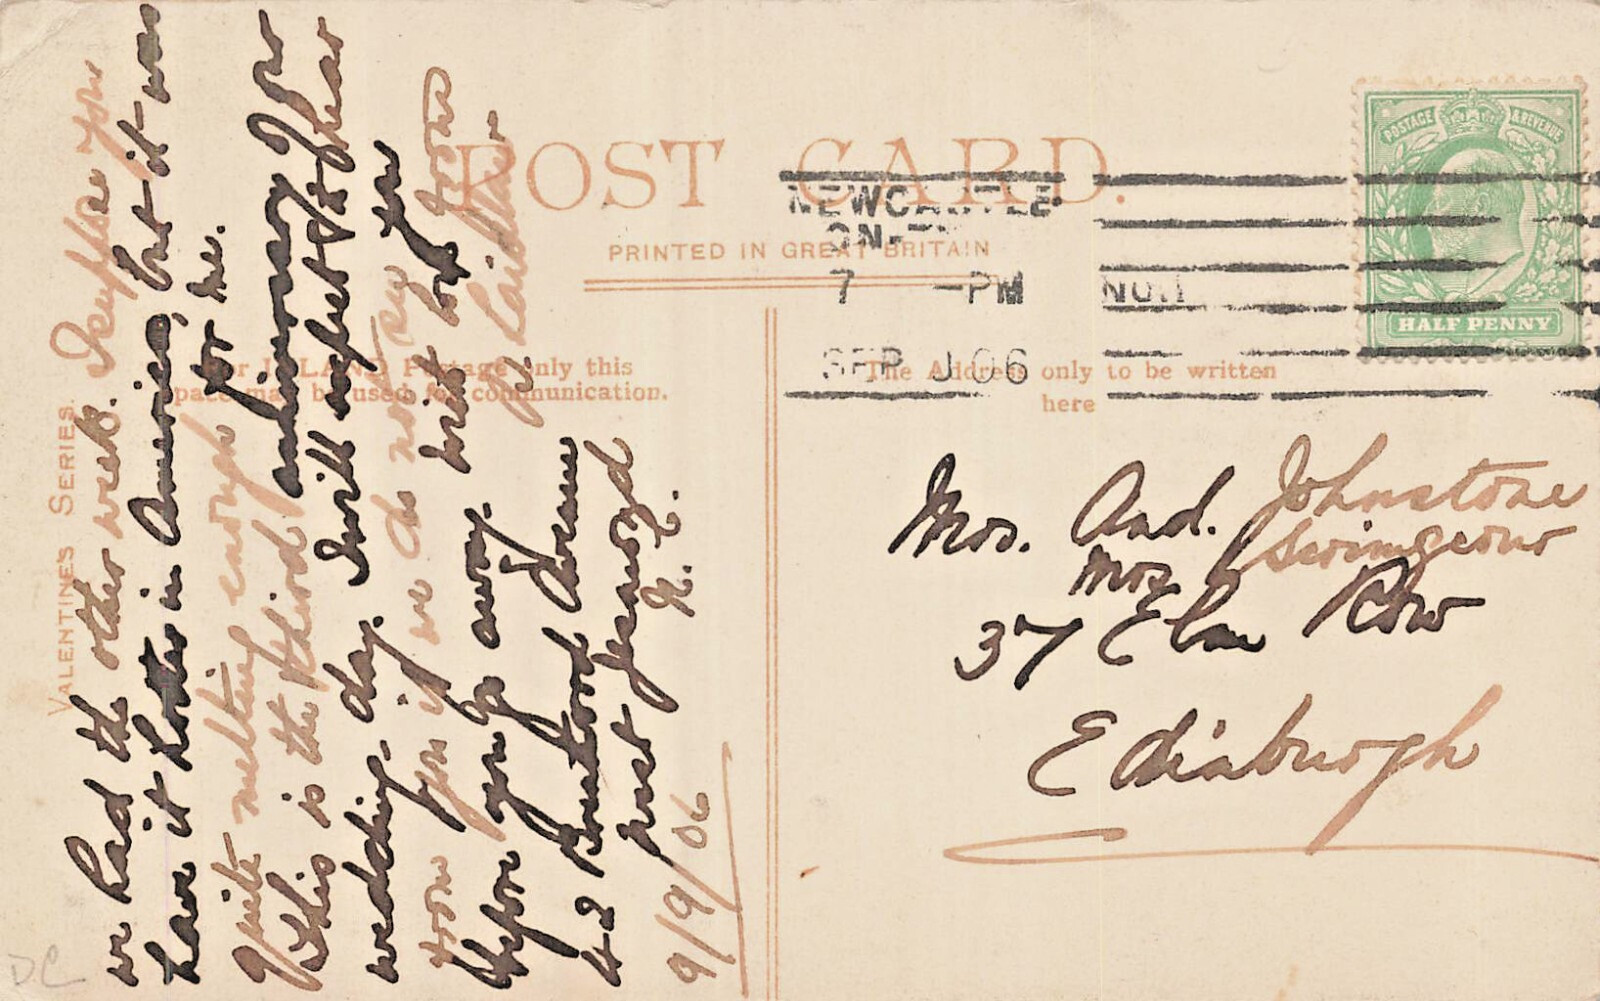 POST CARD.
PRINTED IN GREAT BRITAIN
For INLAND Postage only this
space may be used for communication.
The Address only to be written
here
VALENTINE'S SERIES.
NEWCASTLE
ON-TY
7 -PM
NO.1
SEP 06
POSTAGE & REVENUE
HALF PENNY
Mrs. And. Johnstone
Scrimgeour
37 Elm Row
Edinburgh
I suppose you
we had the other week.
have it hotter in America, but it was
quite melting enough for me.
This is the third anniversary of our
wedding-day. I will expect to hear
from you if we do not see you
before you go away. with love from
J. Laidlaw
42 Brentwood Avenue
West Jesmond
N.C.
9/9/06
DC